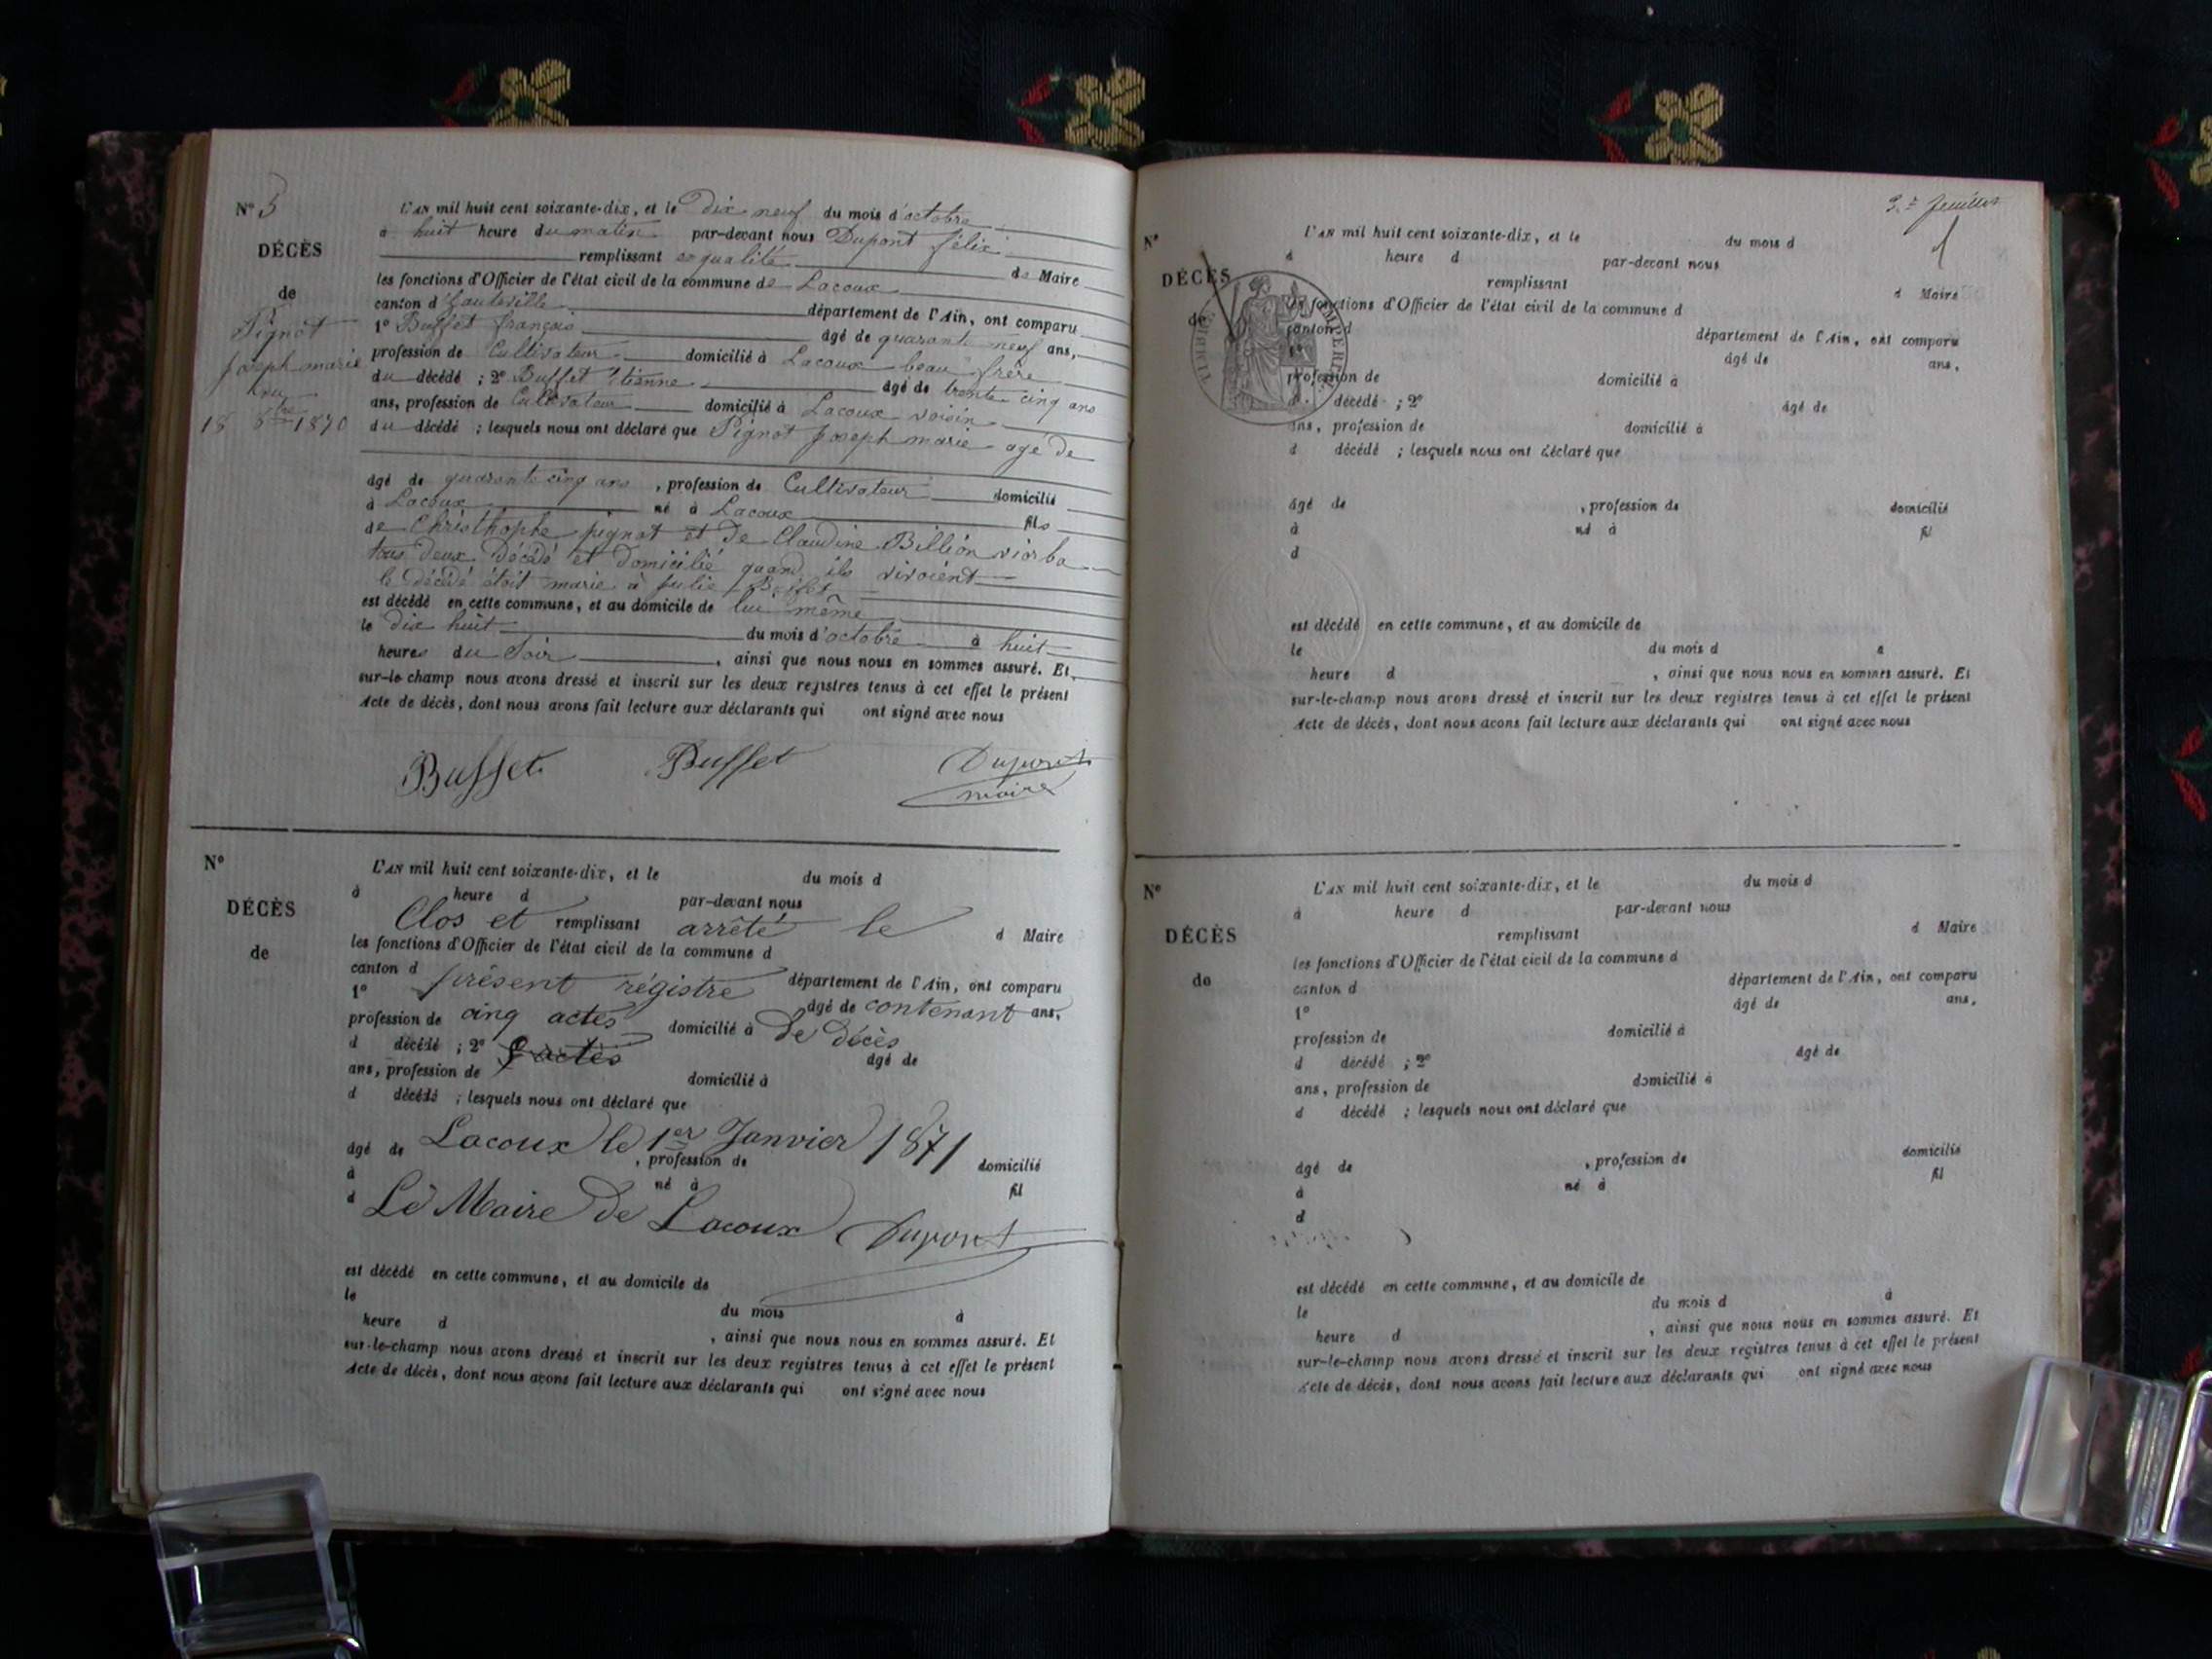 N° 5
DÉCÈS
de
Pignot
Joseph marie
18 8bre 1870
L'AN mil huit cent soixante-dix, et le dix neuf du mois d'octobre
à huit heure du matin par-devant nous Dupont félix
remplissant en qualité de Maire
les fonctions d'Officier de l'état civil de la commune de Lacoux
canton d'hauteville département de l'Ain, ont comparu
1° Buffet françois âgé de quarante neuf ans,
profession de Cultivateur domicilié à Lacoux beau frère
du décédé ; 2° Buffet Etienne âgé de trente cinq ans
ans, profession de Cultivateur domicilié à Lacoux voisin
du décédé ; lesquels nous ont déclaré que Pignot Joseph marie age de
âgé de quarante cinq ans , profession de Cultivateur domicilié
à Lacoux né à Lacoux fils
de Christhophe pignot et de Claudine Billion
tous deux décédé et domicilié quand ils vivoient
le décédé étoit marie à julie Buffet
est décédé en cette commune, et au domicile de lui même
le dix huit du mois d'octobre à huit
heures du Soir , ainsi que nous nous en sommes assuré. Et
sur-le-champ nous avons dressé et inscrit sur les deux registres tenus à cet effet le présent
Acte de décès, dont nous avons fait lecture aux déclarants qui ont signé avec nous
Buffet Buffet Dupont
maire
N°
DÉCÈS
de
L'AN mil huit cent soixante-dix, et le du mois d
à heure d par-devant nous
Clos et remplissant arrêté le d Maire
les fonctions d'Officier de l'état civil de la commune d
canton d présent régistre département de l'Ain, ont comparu
1° âgé de contenant ans,
profession de cinq actes domicilié à de décès
d décédé ; 2° âgé de
ans, profession de domicilié à
d décédé ; lesquels nous ont déclaré que
Lacoux le 1er Janvier 1871
âgé de , profession de domicilié
à né à fil
d Le Maire de Lacoux Dupont
est décédé en cette commune, et au domicile de
le du mois à
heure d , ainsi que nous nous en sommes assuré. Et
sur-le-champ nous avons dressé et inscrit sur les deux registres tenus à cet effet le présent
Acte de décès, dont nous avons fait lecture aux déclarants qui ont signé avec nous
3e feuillet
N°
DÉCÈS
de
TIMBRE IMPERIAL
L'AN mil huit cent soixante-dix, et le du mois d
à heure d par-devant nous
remplissant d Maire
les fonctions d'Officier de l'état civil de la commune d
canton d département de l'Ain, ont comparu
1° âgé de ans,
profession de domicilié à
d décédé ; 2° âgé de
ans, profession de domicilié à
d décédé ; lesquels nous ont déclaré que
âgé de , profession de domicilié
à né à fil
d
est décédé en cette commune, et au domicile de
le du mois d à
heure d , ainsi que nous nous en sommes assuré. Et
sur-le-champ nous avons dressé et inscrit sur les deux registres tenus à cet effet le présent
Acte de décès, dont nous avons fait lecture aux déclarants qui ont signé avec nous
N°
DÉCÈS
de
L'AN mil huit cent soixante-dix, et le du mois d
à heure d par-devant nous
remplissant d Maire
les fonctions d'Officier de l'état civil de la commune d
canton d département de l'Ain, ont comparu
1° âgé de ans,
profession de domicilié à
d décédé ; 2° âgé de
ans, profession de domicilié à
d décédé ; lesquels nous ont déclaré que
âgé de , profession de domicilié
à né à fil
d
est décédé en cette commune, et au domicile de
le du mois d à
heure d , ainsi que nous nous en sommes assuré. Et
sur-le-champ nous avons dressé et inscrit sur les deux registres tenus à cet effet le présent
Acte de décès, dont nous avons fait lecture aux déclarants qui ont signé avec nous